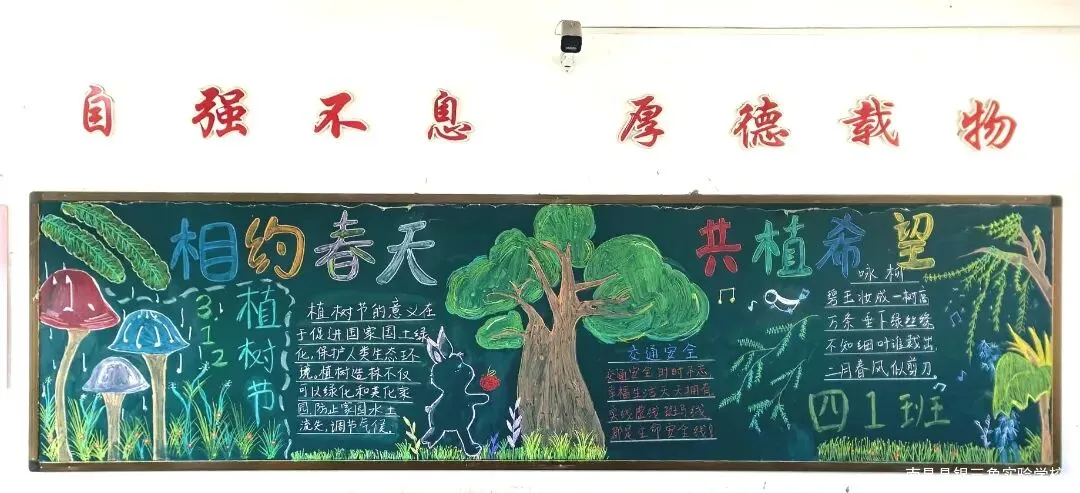 自强不息 厚德载物
相约春天
共植希望
3
1
12
植树节
植树节的意义在
于促进国家国土绿
化,保护人类生态环
境,植树造林不仅
可以绿化和美化家
园,防止家园水土
流失,调节气候.
交通安全
交通安全时时不忘
幸福生活天天拥有
实线虚线斑马线
都是生命安全线!
咏柳
碧玉妆成一树高
万条垂下绿丝绦
不知细叶谁裁出
二月春风似剪刀
四1班
南昌县银三角实验学校